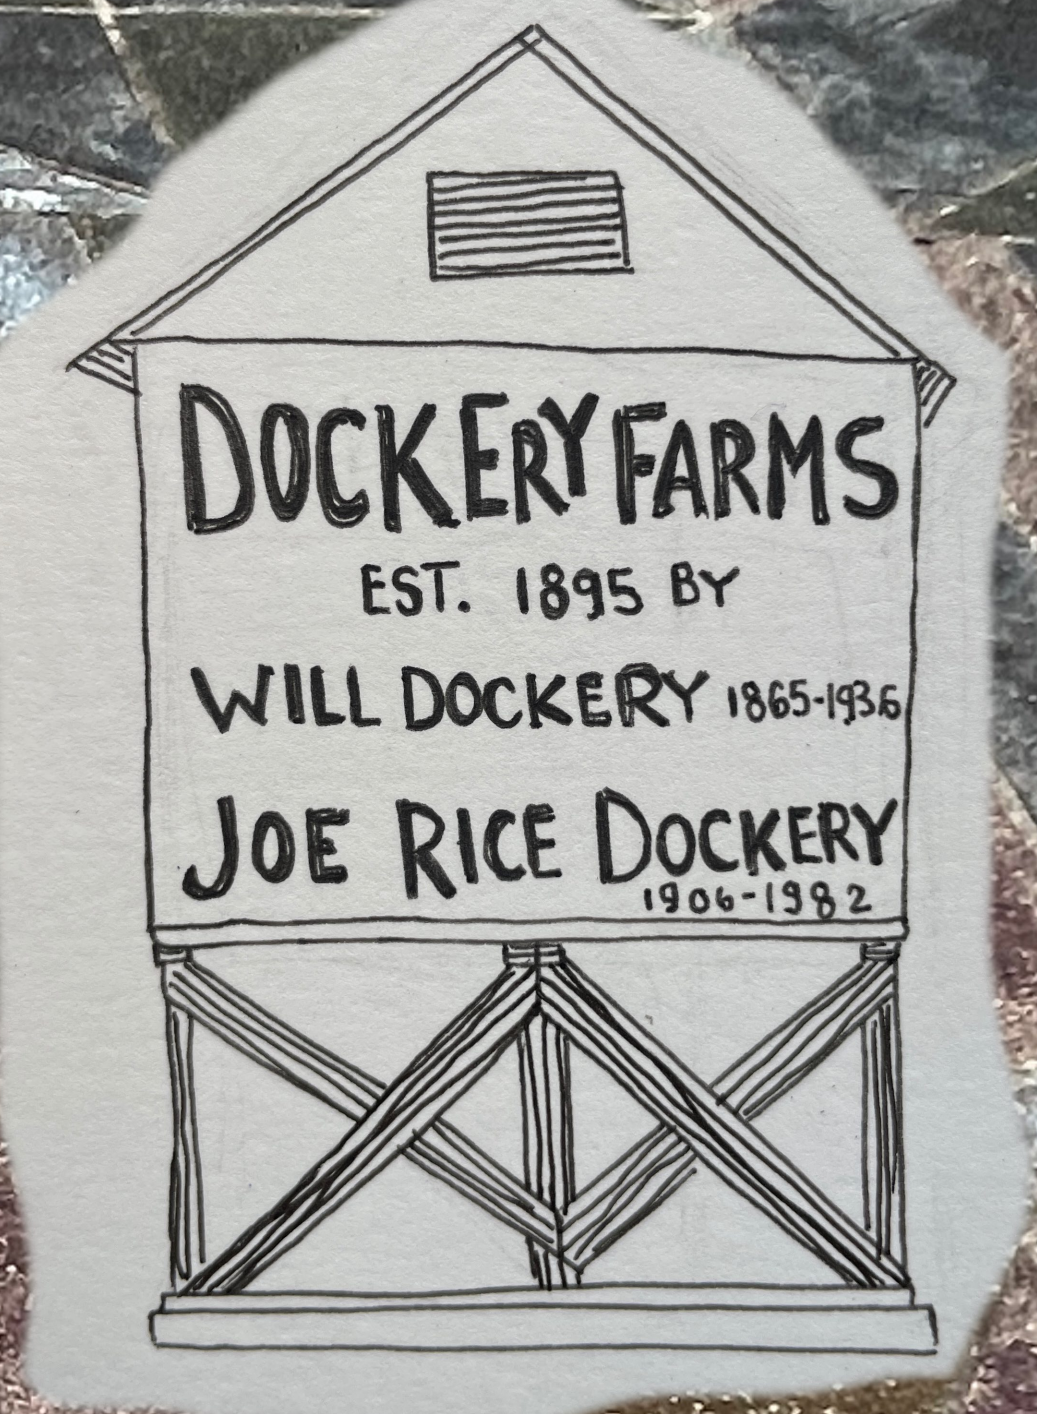 DOCKERY FARMS
EST. 1895 BY
WILL DOCKERY 1865-1936
JOE RICE DOCKERY
1906-1982